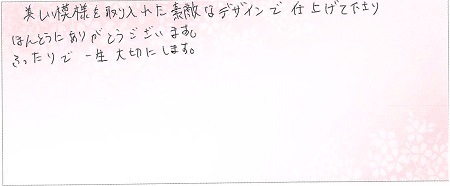 美しい模様を取り入れた素敵なデザインで仕上げて下さり
ほんとうにありがとうございます。
ふたりで一生大切にします。